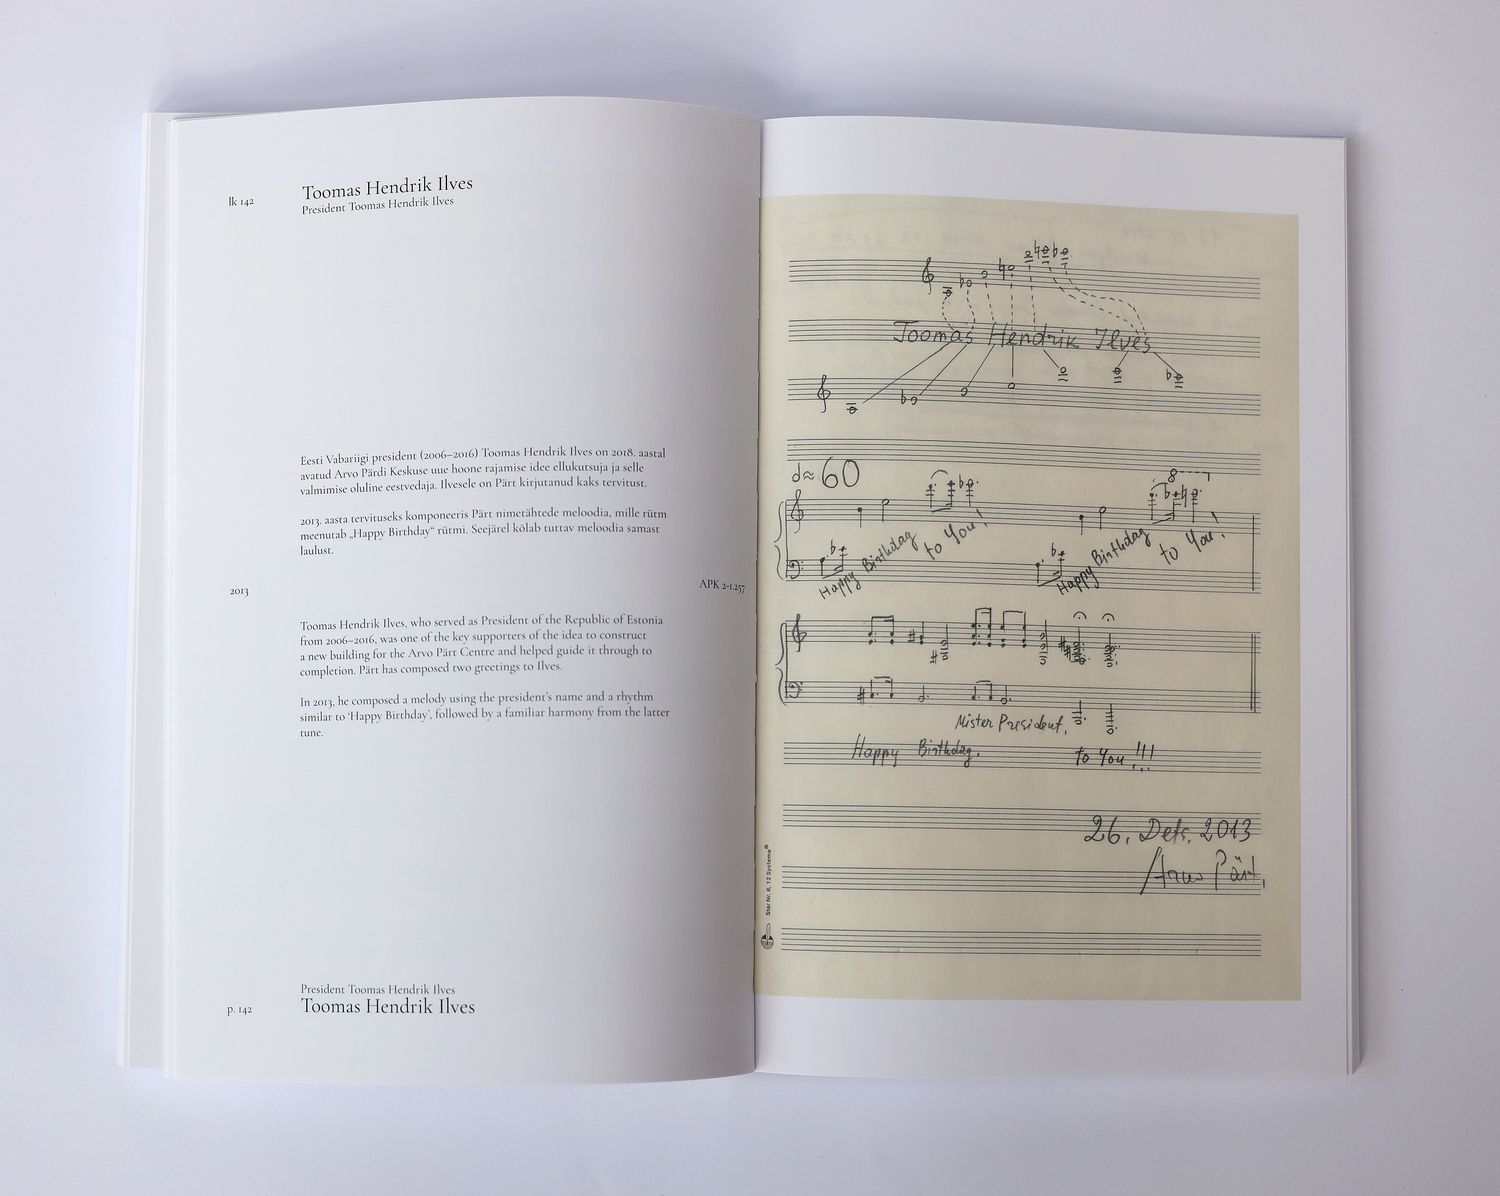 lk 142
Toomas Hendrik Ilves
President Toomas Hendrik Ilves
Eesti Vabariigi president (2006–2016) Toomas Hendrik Ilves on 2018. aastal
avatud Arvo Pärdi Keskuse uue hoone rajamise idee ellukutsuja ja selle
valmimise oluline eestvedaja. Ilvesele on Pärt kirjutanud kaks tervitust.
2013. aasta tervituseks komponeeris Pärt nimetähtede meloodia, mille rütm
meenutab „Happy Birthday“ rütmi. Seejärel kõlab tuttav meloodia samast
laulust.
2013
APK 2-1.257
Toomas Hendrik Ilves, who served as President of the Republic of Estonia
from 2006–2016, was one of the key supporters of the idea to construct
a new building for the Arvo Pärt Centre and helped guide it through to
completion. Pärt has composed two greetings to Ilves.
In 2013, he composed a melody using the president's name and a rhythm
similar to 'Happy Birthday', followed by a familiar harmony from the latter
tune.
President Toomas Hendrik Ilves
p. 142
Toomas Hendrik Ilves
Toomas Hendrik Ilves
≈ 60
8
Happy Birthday to You!
Happy Birthday to You!
Mister President,
Happy Birthday, to You!!!
26. Dets. 2013
Arvo Pärt,
Star Nr. 6. 12 Systeme®